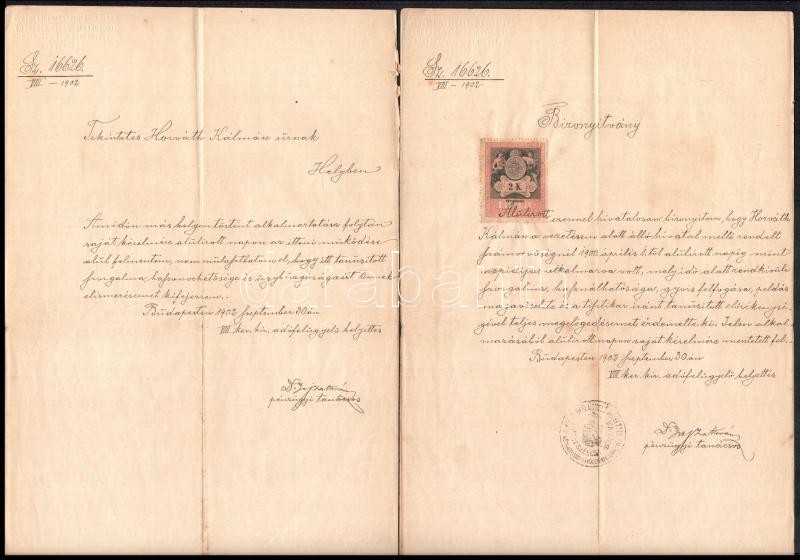 Sz. 16626.
VIII – 1902
Tekintetes Horváth Kálmán úrnak
Helyben
Amidőn más helyen történt alkalmaztatása folytán
saját kérelmére alulirott napon az itteni működése
alul felmentem, nem mulaszthatom el, hogy itt tanusított
szorgalma, és ügybuzgóságaért Önnek
elismerésemet kifejezzem.
Budapesten 1902 szeptember 30án
VIII. ker. kir. adófelügyelő helyettes
pénzügyi tanácsos
Sz. 16626.
VIII – 1902
Bizonyitvány
2 K.
Alulirott ezennel hivatalosan bizonyitom, hogy Horváth
Kálmán a vezetésem alatt álló hivatal mellé rendelt
számvevőségnél 1900. április 1. től alulirott napig mint
napidijas alkalmazva volt, mely idő alatt rendkivüli
szorgalma, használhatósága, gyors felfogása, példás
magaviselete és a tisztikar iránt tanusitott előzékenysé-
gével teljes megelégedésemet érdemelte ki. Jelen alkal-
mazásából alulirott napon saját kérelmére mentetett fel.
Budapesten 1902 szeptember 30án
VIII. ker. kir. adófelügyelő helyettes
pénzügyi tanácsos
darabanth